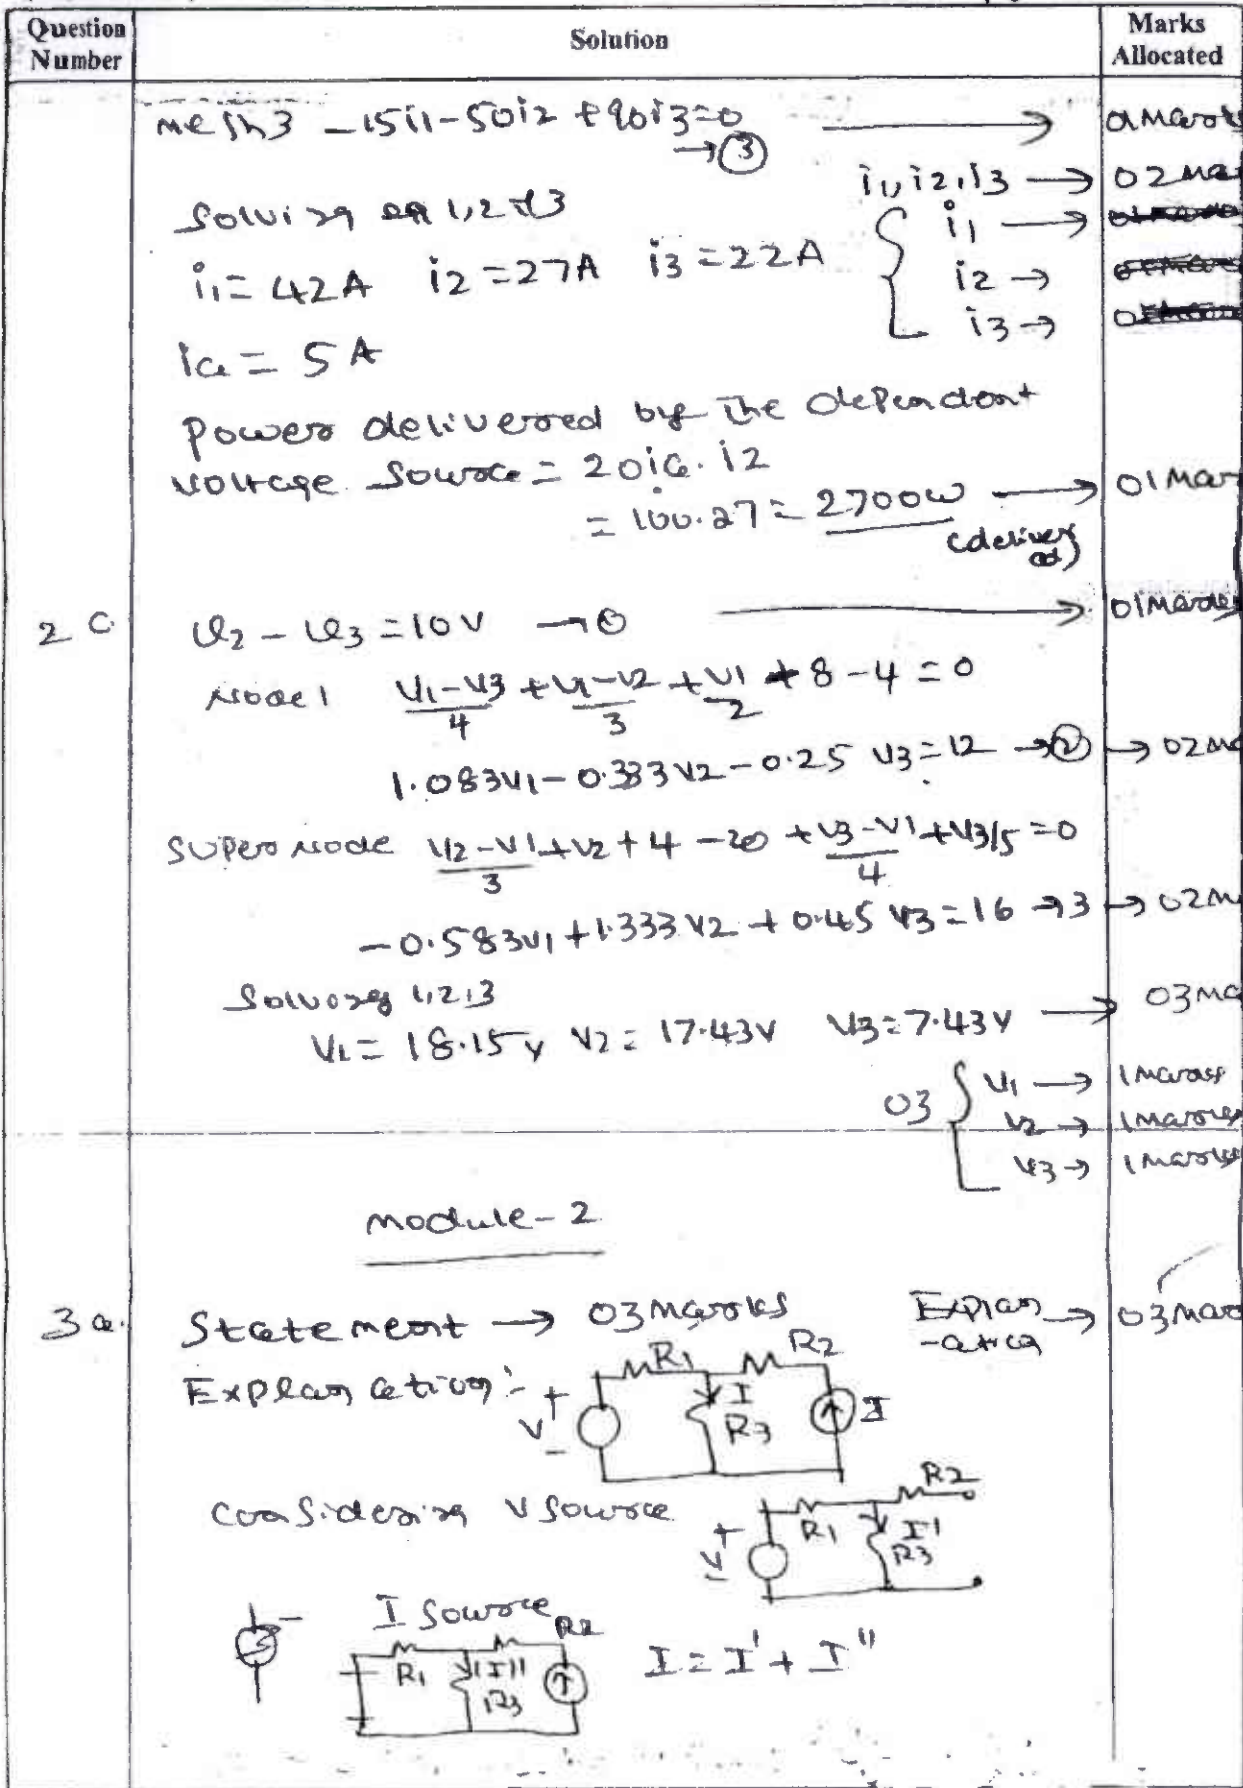 Question Number
Solution
Marks Allocated
mesh3 -15i1-50i2+90i3=0 →
→③
i1,i2,i3 → 02
Solving eq 1,2 &3
i1 →
i1= 42A i2 =27A i3 =22A
i2 →
i3 →
ia = 5A
power delivered by the dependent
voltage source = 20ia.i2
= 100.27 = 2700W → 01 Mar
(delivered)
2 C V2 - V3 =10V →① → 01Marks
Node1 V1-V3/4 + V1-V2/3 + V1/2 + 8 - 4 = 0
1.083V1-0.333V2-0.25 V3=12 →② → 02M
SuperNode V2-V1/3 +V2+4-20 + V3-V1/4 +V3/5 =0
-0.583V1+1.333V2+0.45 V3=16 →3 → 02M
Solving 1,2,3
V1= 18.15V V2= 17.43V V3=7.43V → 03Ma
03 { V1 → 1Marks
V2 → 1Marks
V3 → 1Marks
module-2
3a. Statement → 03Marks Explan-ation → 03Mar
Explanation:-
R1 R2
+ V - I R3 I
Considering V source
+ V - R1 R2 I' R3
I source
R1 R2 I'' R3
I = I' + I''